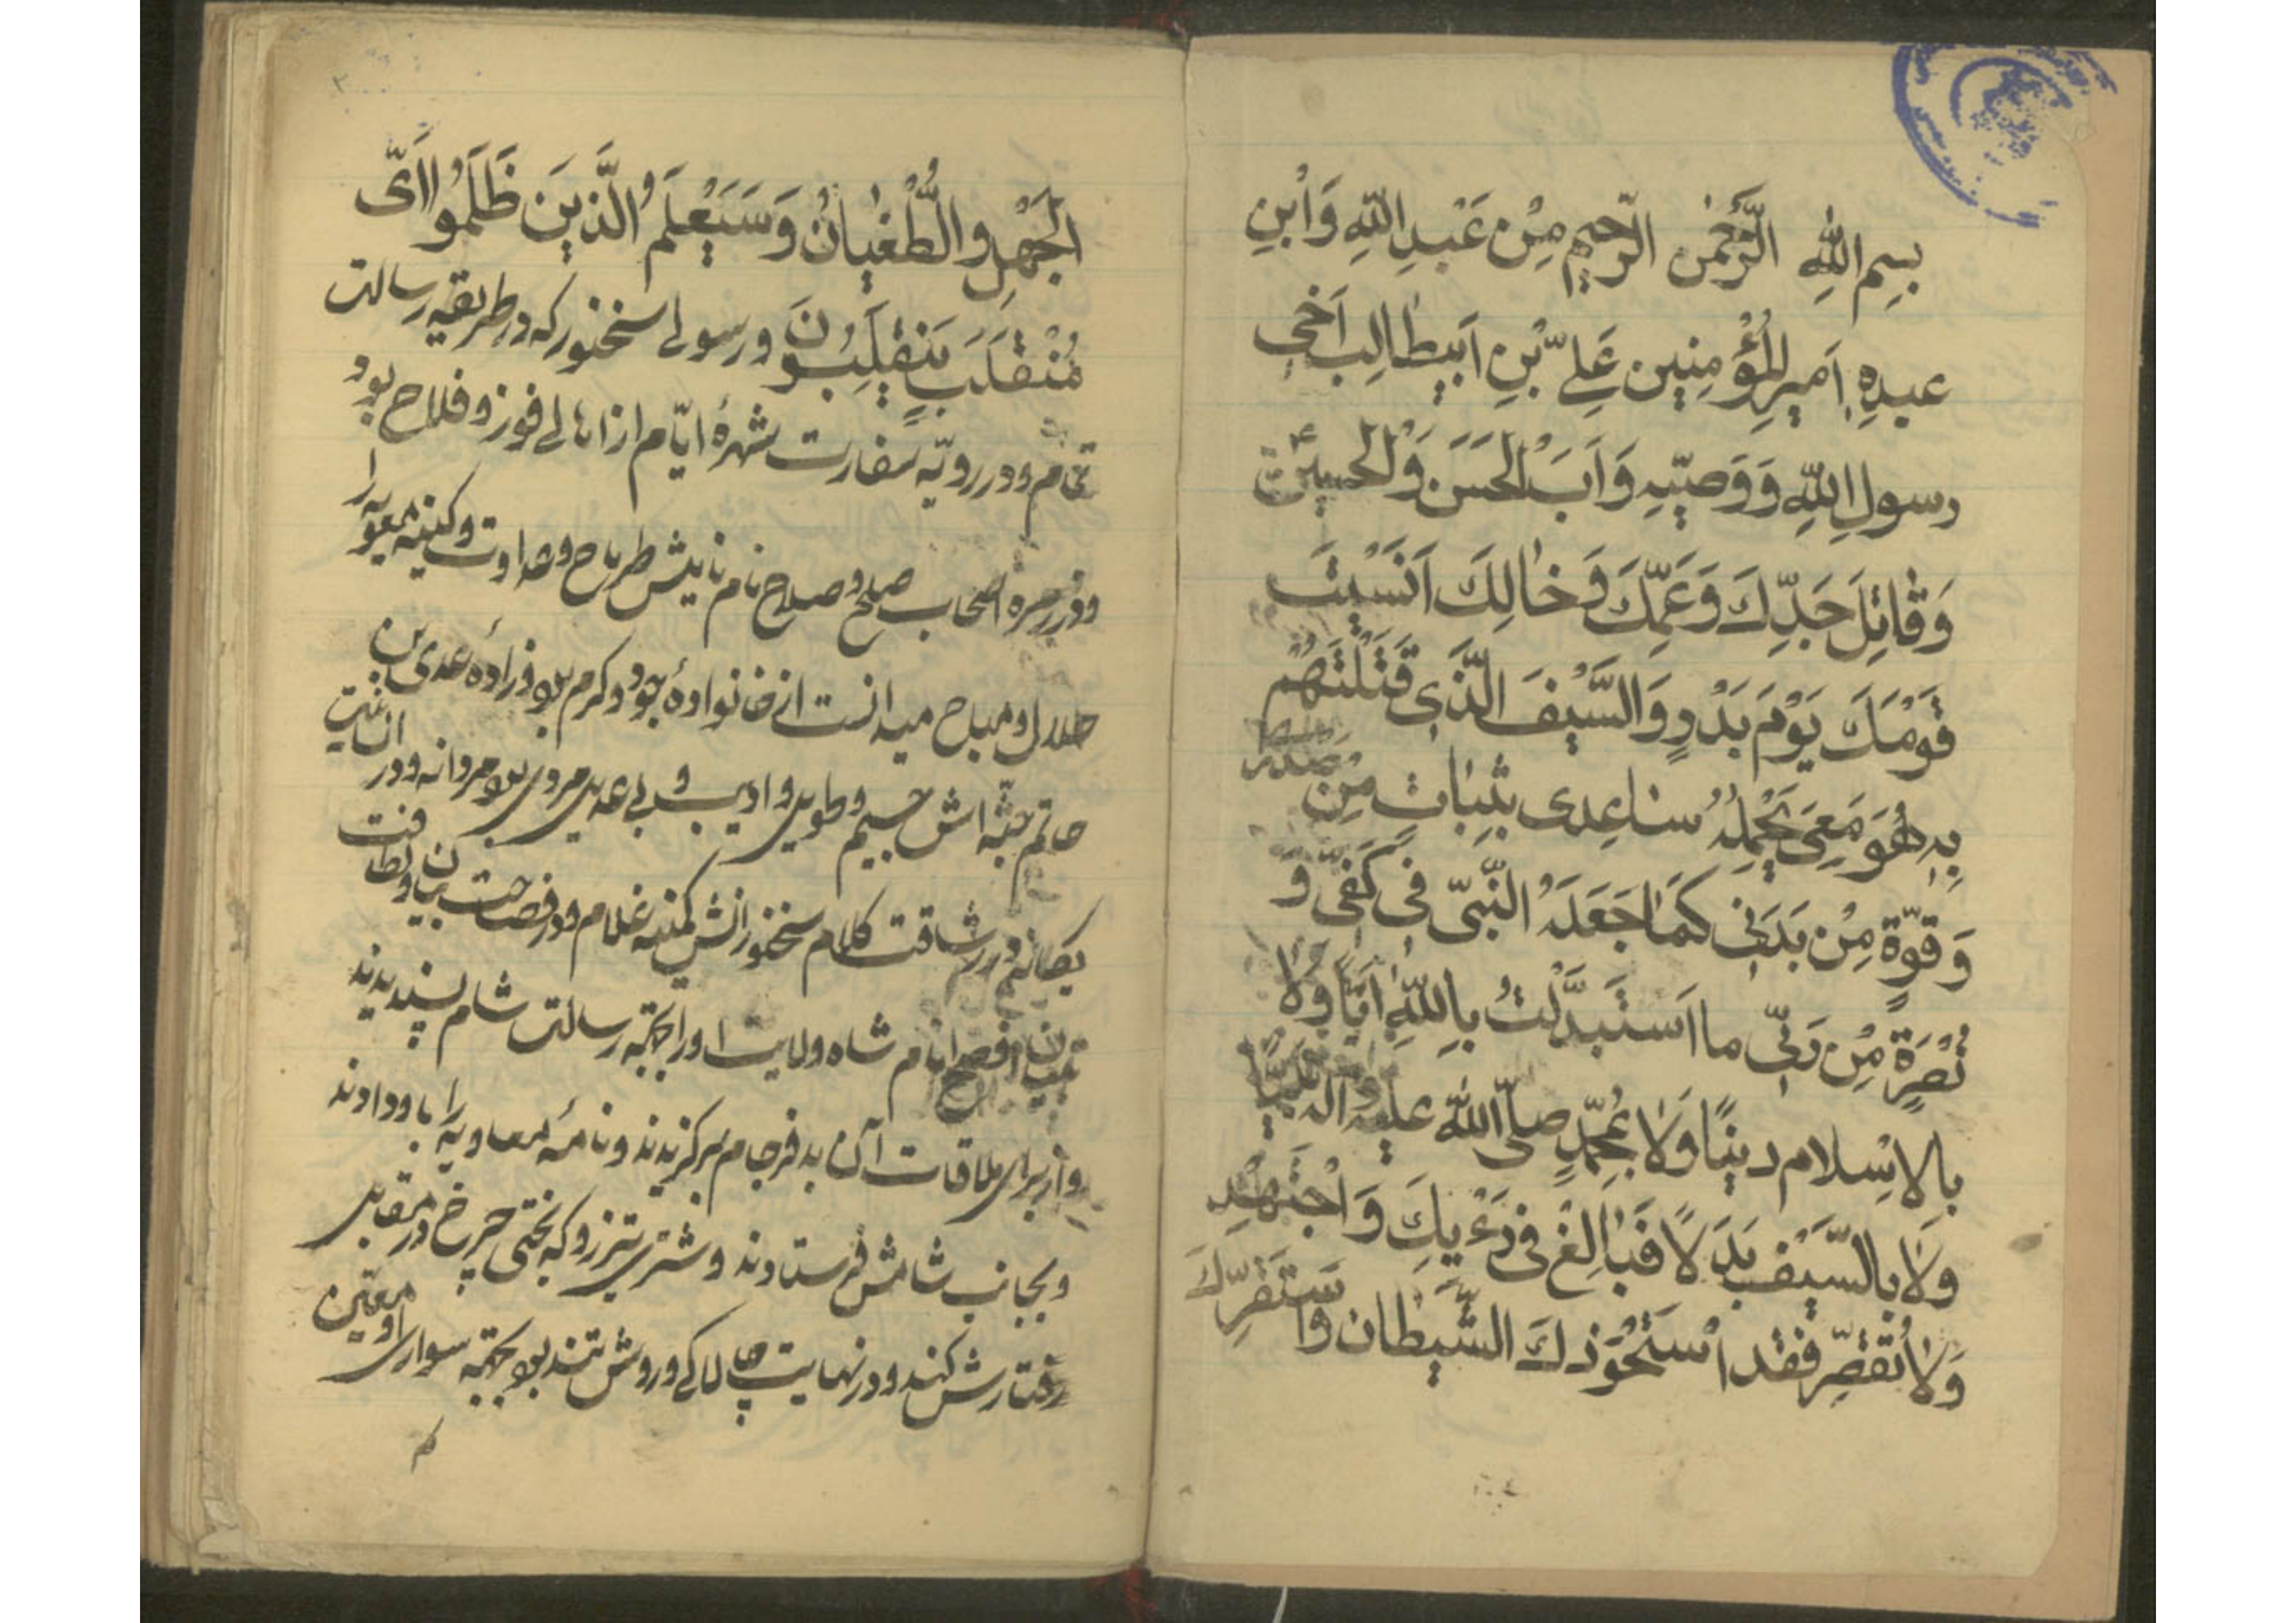 بِسمِ اللّٰهِ الرَّحْمٰنِ الرَّحیمِ مِنْ عَبْدِ اللّٰهِ وَابْنِ
عبدِهِ اَمیرِ المُؤْمِنین عَلِیّ بْنِ اَبیطالِب اَخی
رسولِ اللّٰهِ وَ وَصیّهِ وَ اَبَ الْحَسَنِ وَ الْحُسَیْن
وَ قٰاتِلِ جَدِّكَ وَ عَمِّكَ وَ خٰالِكَ اَنَسیتَ
قَوْمَكَ یَوْمَ بَدْرٍ وَ السَّیْفَ الَّذی قَتَلْتَهُمْ
بِهِ هُوَ مَعی یَحْمِلُهُ سٰاعِدی بِثَبٰاتٍ مِنْ صَدْر
وَ قوّةٍ مِنْ بَدَنی كَمٰا جَعَلَهُ النَّبیّ فی كَفّی وَ
نُصْرَةٍ مِنْ رَبّی ما اَسْتَبدَلْتُ بِاللّٰهِ رَبّاً وَلا
بالاِسْلامِ دیناً وَلٰا بِمُحَمّدٍ صلّی اللّٰه علیه واله نَبیّاً
وَلٰا بِالسَّیْفِ بَدَلاً فَبٰالِغْ فی رَءْیِكَ وَ اجْتَهِدْ
وَلٰا تُقَصِّرْ فقد اسْتَحْوَذَكَ الشَّیطٰان وَاسْتَفَزَّكَ
الجَهْلُ و الطُّغْیٰانُ وَ سَیَعْلَمُ الَّذینَ ظَلَمُوا اَیَّ
مُنْقَلَبٍ یَنْقَلِبُونَ و رسولے سخنور که در طریقه رسالت
تمام و در رویّه سفارت شهرهٔ ایّام از اهالے فوز و فلاح بود
و در زمره اصحاب صلح و صلاح نام نامیش طرماح و عداوت و کینه معویه را
حلال و مباح میدانست از خانوادهٔ جود و کرم بود و زادهٔ عدی بن
حاتم جثّه اش جسیم و طویل و ادیب و بے عدیل مردی بود مردانه و در انسانیت
یگانه و در رشاقت کلام سخنورانش کمینه غلام و در فصاحت بیان و لطافت
تبیان افصح انام شاه ولایت او را بجهته رسالت شام پسندیدند
و از برای ملاقات آن بدفرجام برگزیدند و نامهٔ معاویه را باو دادند
و بجانب شامش فرستادند و شتری تیزرو که بختی چرخ در مقابل
رفتارش کند و در نهایت چالاکے و روش تند بود بجهته سواری او معیّن